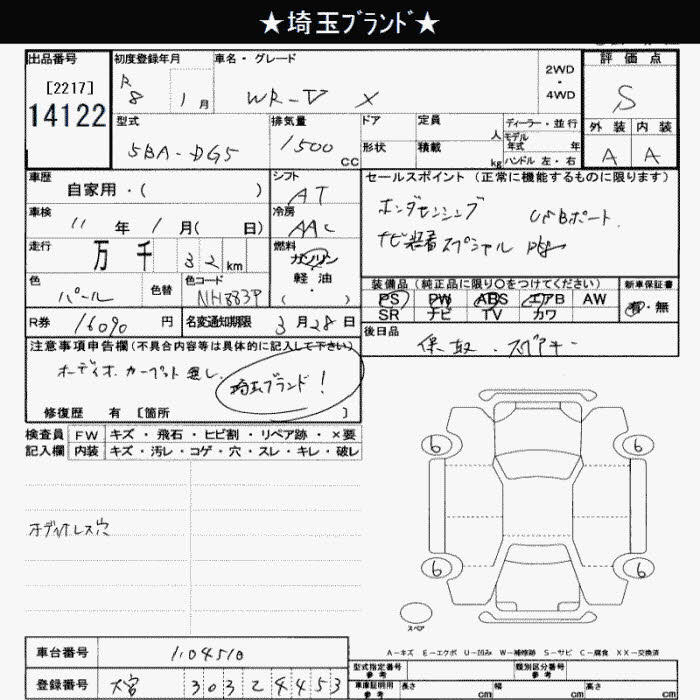 ★埼玉ブランド★
出品番号 初度登録年月 車名・グレード 評価点
[2217] R8 1月 WR-V X 2WD・4WD S
14122
型式 排気量 ドア 定員 人 ディーラー・並行 外装 内装
5BA-DG5 1500 CC 形状 積載 kg モデル年式 年 ハンドル 左・右 A A
車歴 自家用・( ) シフト AT セールスポイント (正常に機能するものに限ります)
車検 11年 1月( 日) 冷房 AAC ホンダセンシング USBポート
走行 万 千 32 km 燃料 ガソリン・軽油・( ) ナビ装着スペシャル
色 パール 色替 色コード NH883P 装備品 (純正品に限り○をつけてください) 新車保証書
PS PW ABS エアB AW 有・無
SR ナビ TV カワ
R券 16090円 名変通知期限 3月28日 後日品
保取.スペアキー
注意事項申告欄(不具合内容等は具体的に記入して下さい)
オーディオ.カーペット無し. 埼玉ブランド!
修復歴 有 [箇所 ]
検査員 FW キズ・飛石・ヒビ割・リペア跡・×要
記入欄 内装 キズ・汚レ・コゲ・穴・スレ・キレ・破レ
6 6
オーディオレス穴
6 6
スペア
A-キズ E-エクボ U-凹み W-補修跡 S-サビ C-腐食 XX-交換済
車台番号 1104510 型式指定番号 参考 類別区分番号 参考
登録番号 大宮 303 2 4453 車庫証明用 参考 長さ cm 幅 cm 高さ cm